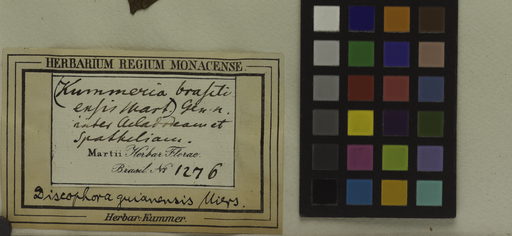 HERBARIUM REGIUM MONACENSE.
(Kummeria brasili
ensis Mart.) Gen. n.
inter et
Spatheliam.
Martii Herbar. Florae
Brasil. No 1276
Discophora guianensis Miers.
Herbar. Kummer.